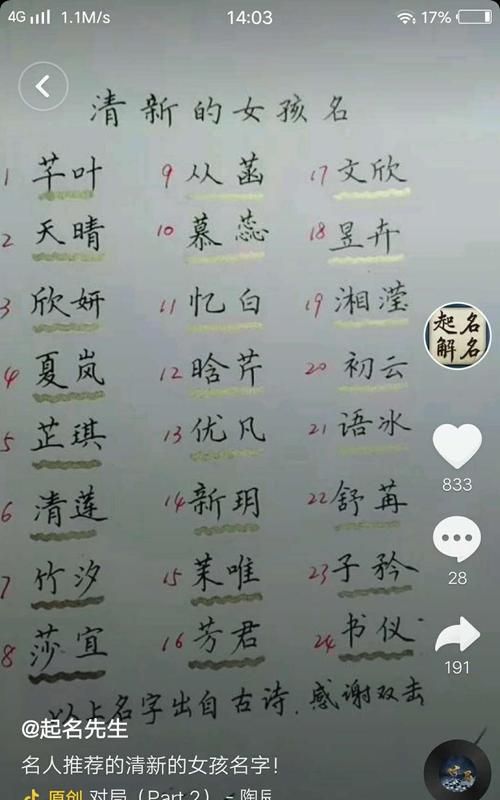 4G 1.1M/s 14:03 17%
清新的女孩名
1 芊叶 9 从菡 17 文欣
2 天晴 10 慕蕊 18 昱卉
3 欣妍 11 忆白 19 湘滢
4 夏岚 12 晗芹 20 初云
5 芷琪 13 优凡 21 语冰
6 清莲 14 新玥 22 舒苒
7 竹汐 15 茉唯 23 子矜
8 莎宜 16 芳君 24 书仪
起名
解名
833
28
191
以上名字出自古诗.感谢双击
@起名先生
名人推荐的清新的女孩名字!
原创 对局 (Part 2) - 陶辰